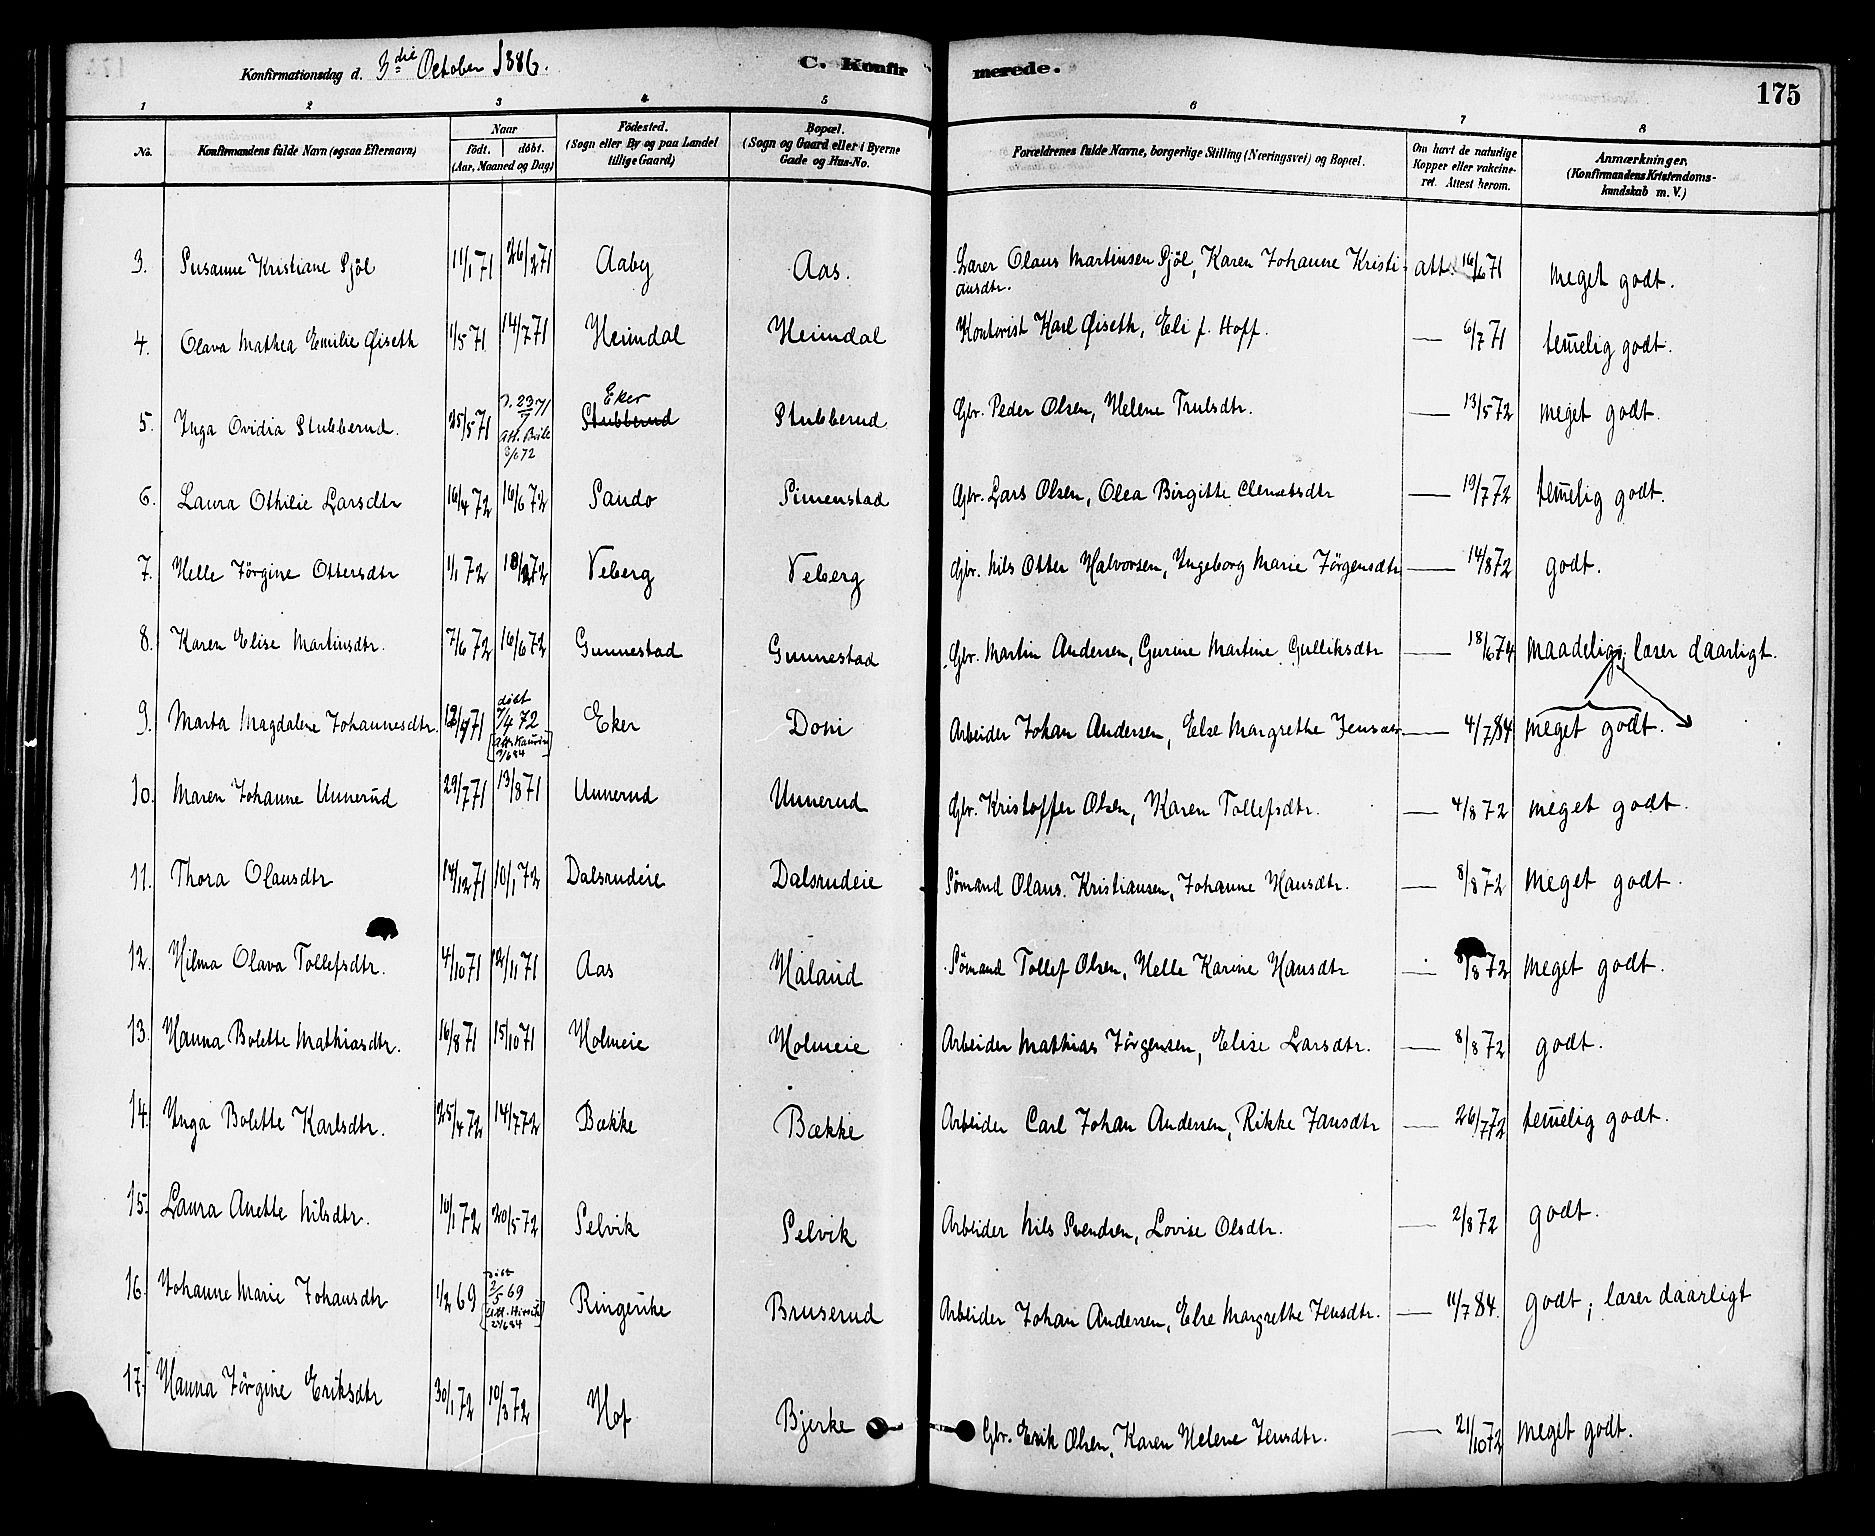 Konfirmationsdag d. 3die October 1886.
C. Konfirmerede.
175
1 2 3 4 5 6 7 8
No.
Konfirmandens fulde Navn (ogsaa Efternavn)
Naar
født. døbt.
(Aar, Maaned og Dag)
Fødested.
(Sogn eller By og paa Landet
tillige Gaard)
Bopæl.
(Sogn og Gaard eller i Byerne
Gade og Hus-No.
Forældrenes fulde Navne, borgerlige Stilling (Næringsvei) og Bopæl.
Om havt de naturlige
Kopper eller vakcine-
ret. Attest herom.
Anmærkninger,
(Konfirmandens Kristendoms-
kundskab m. V.)
3. Susanne Kristiane Sjöl 11/1 71 26/2 71 Aaby Aas. Lærer Olaus Martinsen Sjöl, Karen Johanne Kristi- att. 16/6 71 meget godt.
ansdtr.
4. Olava Mathea Emilie Øiseth 1/5 71 14/7 71 Heimdal Heimdal Kontorist Karl Øiseth, Eli f. Hoff. — 6/7 71 temelig godt.
5. Inga Ovidia Stubberud. 25/5 71 23/7 71 Eker Stubberud Stubberud Gbr. Peder Olsen, Helene Trulsdtr. — 13/5 72 meget godt.
3/6 72
6. Laura Othilie Larsdtr 16/4 72 16/6 72 Sando Simenstad Gbr. Lars Olsen, Olea Birgitte Clemetsdtr — 19/7 72 temelig godt.
7. Helle Jörgine Ottersdtr 1/1 72 18/2 72 Veberg Veberg Gbr. Nils Otter Halvorsen, Ingeborg Marie Jörgensdtr — 14/8 72 godt.
8. Karen Elise Martinsdtr. 7/6 72 16/6 72 Gunnestad Gunnestad Gbr. Martin Andersen, Gurine Martine Gulliksdtr — 18/6 74 maadelig; læser daarligt.
9. Marta Magdalene Johannesdtr. 71 döbt 7/4 72 Eker Doni Arbeider Johan Andersen, Else Margrethe — 4/7 84 meget godt.
10. Maren Johanne Unnerud 29/7 71 13/8 71 Unnerud Unnerud Gbr. Kristoffer Olsen, Karen Tollefsdtr. — 4/8 72 meget godt.
11. Thora Olausdtr 14/12 71 10/1 72 Dalsrudeie Dalsrudeie Sømand Olaus Kristiansen, Johanne Hansdtr. — 8/8 72 meget godt.
12. Hilma Olava Tollefsdtr. 4/10 71 12/11 71 Aas Haland Sømand Tollef Olsen, Helle Karine Hansdtr 8/8 72 meget godt.
13. Hanna Bolette Mathiasdtr. 16/8 71 15/10 71 Holmeie Holmeie Arbeider Mathias Jörgensen, Elise Larsdtr. — 8/8 72 godt.
14. Inga Bolette Karlsdtr. 25/4 72 14/7 72 Bække Bække Arbeider Carl Johan Andersen, Rikke Jansdtr — 26/7 72 temelig godt.
15. Laura Anette Nilsdtr. 10/1 72 20/5 72 Selvik Selvik Arbeider Nils Svendsen, Lovise Olsdtr. — 2/8 72 godt.
16. Johanne Marie Johansdtr 1/2 69 döbt 2/5 69 Ringerike Bruserud Arbeider Johan Andersen, Else Margrethe Jensdtr. — 11/7 84. godt; læser daarligt
17. Hanna Jörgine Eriksdtr 30/1 72 10/3 72 Hof Bjerke Gbr. Erik Olsen, Karen Helene Jensdtr. — 21/10 72 meget godt.